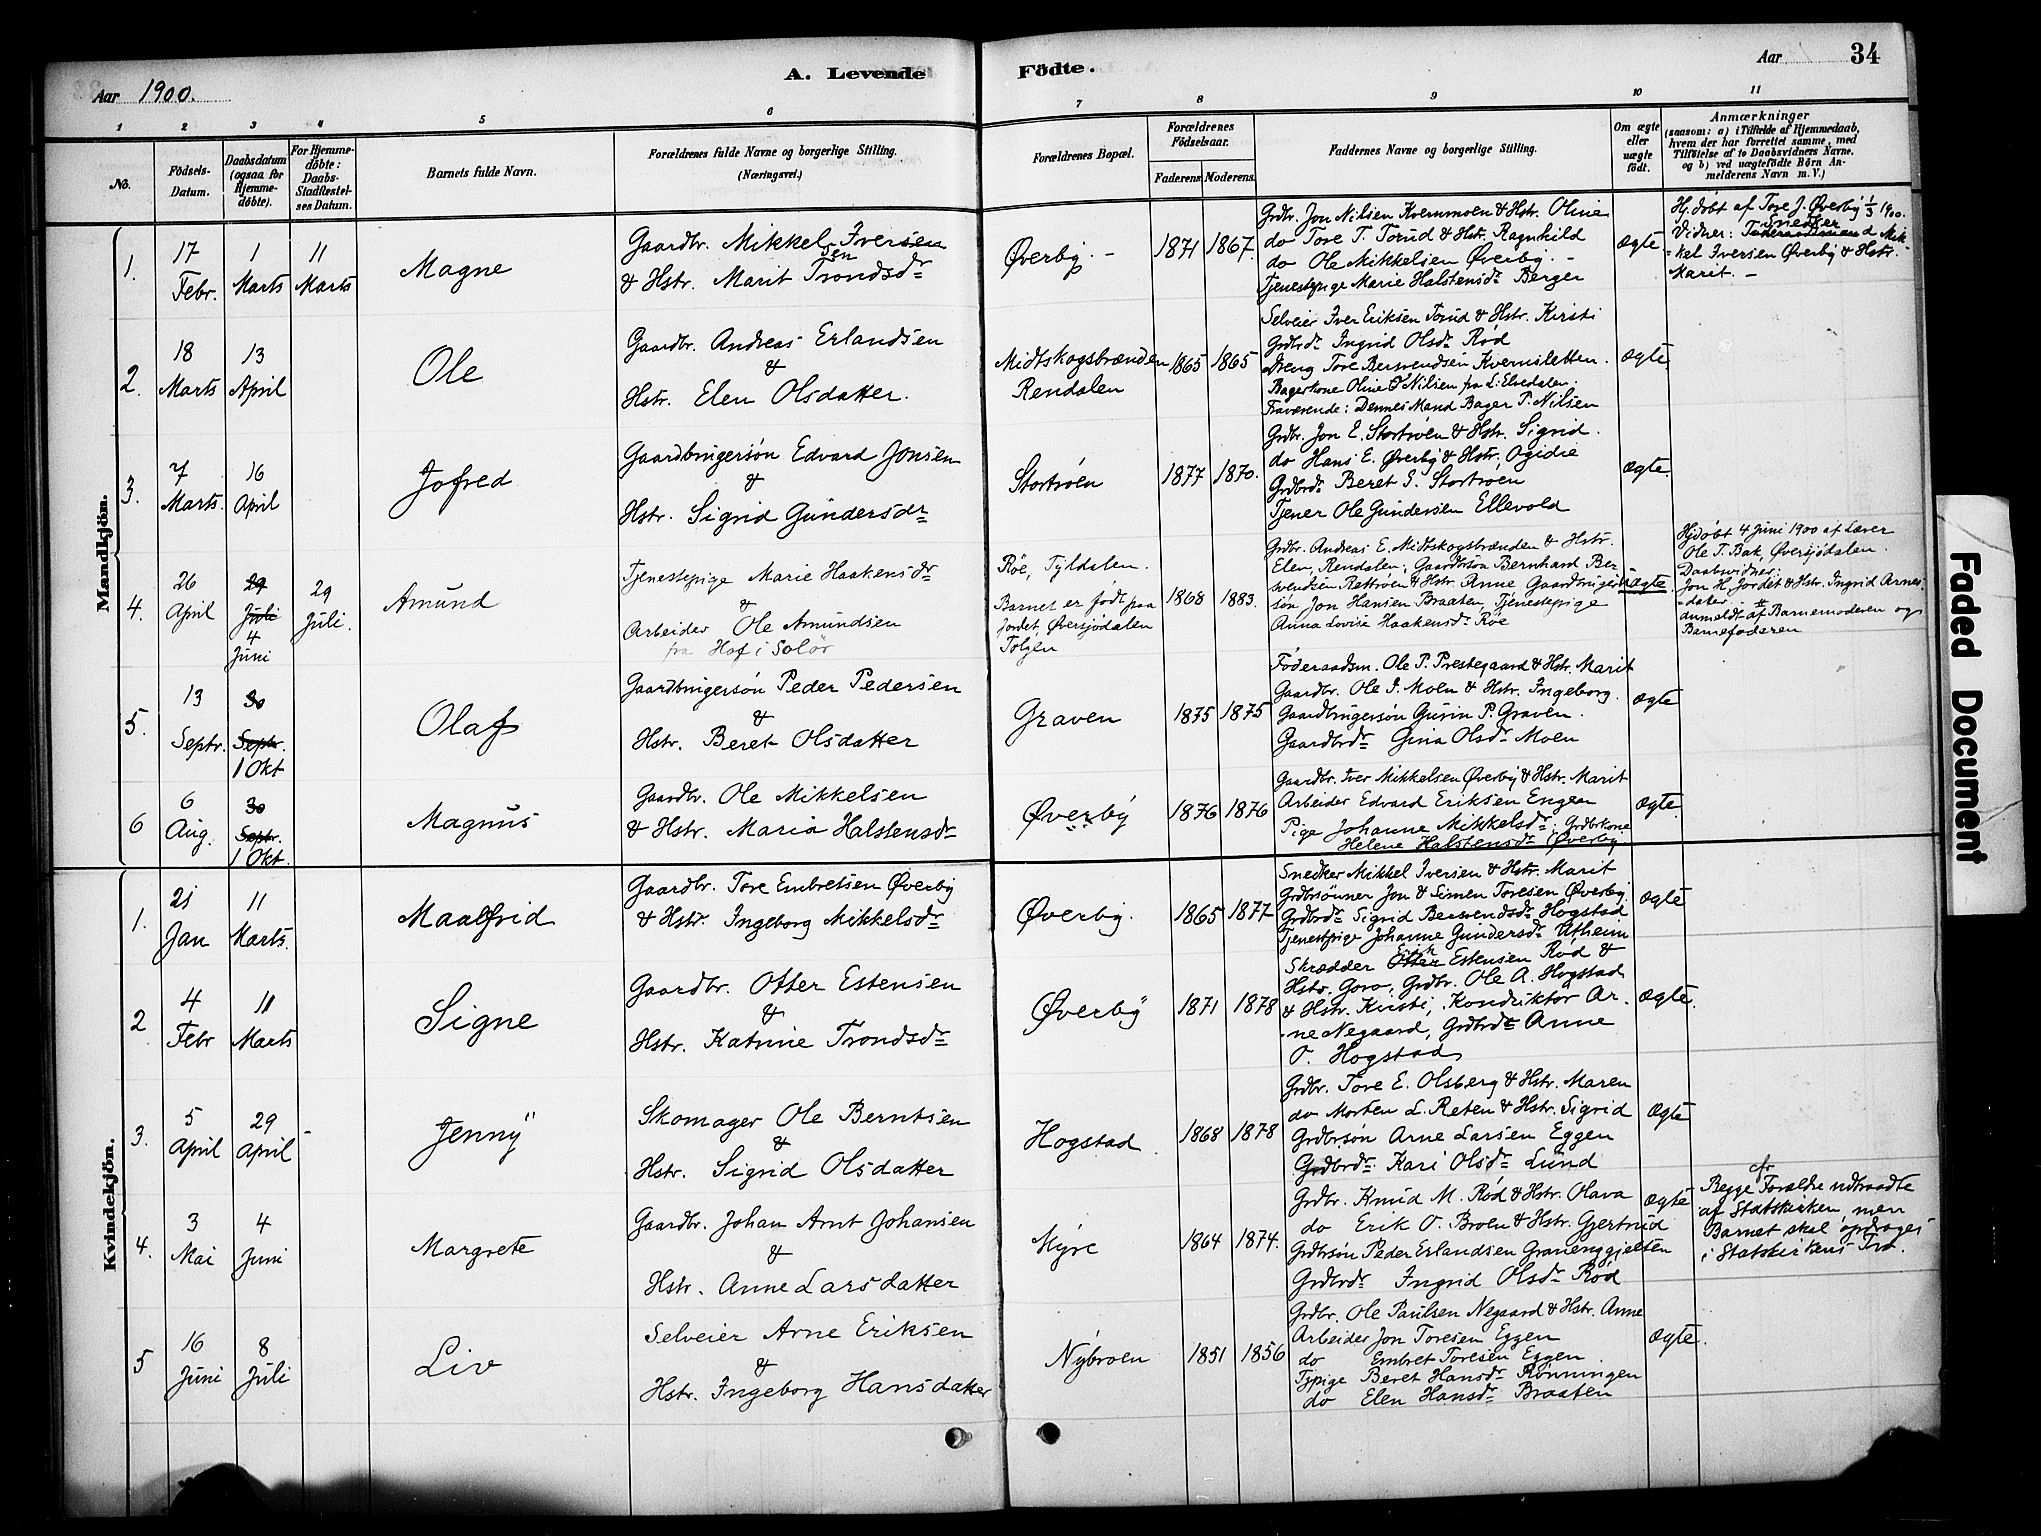 Aar 1900.
A. Levende Födte.
Aar
34
1 2 3 4 5 6 7 8 9 10 11
No.
Födsels-
Datum.
Daabsdatum
(ogsaa for
Hjemme-
döbte).
For Hjemme-
döbte:
Daabs-
Stadfæstel-
ses Datum.
Barnets fulde Navn.
Forældrenes fulde Navne og borgerlige Stilling.
(Næringsvei.)
Forældrenes Bopæl.
Forældrenes
Födselsaar.
Faderens. Moderens.
Faddernes Navne og borgerlige Stilling.
Om ægte
eller
uægte
födt.
Anmærkninger
(saasom: a) i Tilfælde af Hjemmedaab,
hvem der har forrettet samme, med
Tilföielse af to Daabsvidners Navne,
og b) ved uægtefödte Börn An-
melderens Navn m. V.)
Mandkjön.
1.
17
Febr.
1
Marts
11
Marts
Magne
Gaardbr. Mikkel Iversen
& Hstr. Marit Trondsdr
Øverby. -
1871 1867.
Grdbr. Jon Nilsen Kvernmoen & Hstr. Oline
do Tore T. Torud & Hstr. Ragnhild
do Ole Mikkelsen Øverby. -
Tjenestepige Marie Halstensdr Berger
ægte.
Hj.døbt af Tore J. Øverby 1/3 1900.
Snedker
Vidner: Mik-
kel Iversen Øverby & Hstr.
Marit. -
2.
18
Marts
13
April
Ole
Gaardbr. Andreas Erlandsen
&
Hstr. Elen Olsdatter.
Midtskogsbrænden
Rendalen
1865 1865
Selveier Iver Eriksen Torud & Hstr. Kirsti
Grdbrdr Ingrid Olsdr Rød
Dreng Tore Bersvendsen Kvernsletten.
Bagerkone Oline Nilsen fra L. Elvedalen.
Fraværende: Dennes Mand Bager P. Nilsen
ægte.
3.
7
Marts.
16
April
Jofred
Gaardbrugersøn Edvard Jonsen
&
Hstr. Sigrid Gundersdr
Stortrøen
1877 1870.
Grdbr. Jon E. Stortrøen & Hstr. Sigrid.
do Hans E. Øverby & Hstr. Ogidie
Grdbrdr Beret E. Stortroen
Tjener Ole Gundersen Ellevold
ægte.
4.
26
April
29
Juli
4
Juni
29
Juli.
Amund
Tjenestepige Marie Haakensdr
&
Arbeider Ole Amundsen
fra Hof i Solør
Røe, Tyldalen.
Barnet er født paa
Jordet, Øversjødalen
Tolgen
1868 1883.
Grdbr. Andreas E. Midtskogsbrænden & Hstr.
Elen, Rendalen; Gaardbrsøn Bernhard Ber-
svendsen Rettrøen & Hstr. Anne Gaardbruger-
søn Jon Hansen Braaten, Tjenestepige
Anna Lovise Haakensdr Røe
uægte
Hjdøbt 4 Juni 1900 af Lærer
Ole T. Bak Øversjødalen.
Daabsvidner:
Jon H. Jordet & Hstr. Ingrid Arnes-
datter.
Anmeldt af Barnemoderen og
Barnefaderen
5.
13
Septr.
30
Septr.
1 Okt
Olaf
Gaardbrugersøn Peder Pedersen
&
Hstr. Beret Olsdatter
Graven
1875 1875
Føderaadsm. Ole P. Prestegaard & Hstr. Marit
Gaardbr. Ole I. Moen & Hstr. Ingeborg.
Gaardbrugersøn Gurin P. Graven.
Gaardbrdr Gina Olsdr Moen
ægte
6
6
Aug.
30
Septr.
1 Okt.
Magnus
Gaardbr. Ole Mikkelsen
& Hstr. Maria Halstensdr
Øverby
1876 1876
Gaardbr. Iver Mikkelsen Øverby & Hstr. Marit
Arbeider Edvard Eriksen Engen
Pige Johanne Mikkelsdr. Grdbrkone
Helene Halstensdr Øverby
ægte.
Kvindekjön.
1.
21
Jan
11
Marts.
Maalfrid
Gaardbr. Tore Embretsen Øverby
& Hstr. Ingeborg Mikkelsdr
Øverby.
1865 1877
Snedker Mikkel Iversen & Hstr. Marit
Grdbrsønner Jon & Simen Toresen Øverby.
Grdbrdr Sigrid Bersvendsdr Hogstad
Tjenestpige Johanne Gundersdr Utheim
ægte
2
4
Febr
11
Marts
Signe
Gaardbr. Otter Estensen
&
Hstr. Katrine Trondsdr
Øverby
1871 1878
Skrædder Otter Estensen Rød &
Hstr. Goro, Grdbr. Ole A. Hogstad
& Hstr. Kirsti, Konduktør Ar-
ne Negaard, Grdbrdr Anne
O. Hogstad
ægte.
3.
5
April
29
April
Jenny
Skomager Ole Berntsen
&
Hstr. Sigrid Olsdatter
Hogstad
1868 1878
Grdbr. Tore E. Olsberg & Hstr. Maren
do Morten L. Reten & Hstr. Sigrid
Grdbrsøn Arne Larsen Eggen
Grdbrdr. Kari Olsdr Lund
ægte
4.
3
Mai
4
Juni
Margrete
Gaardbr. Johan Arnt Johansen
&
Hstr. Anne Larsdatter
Myre
1864 1874.
Grdbr. Knud M. Rød & Hstr. Olava
do Erik O. Broen & Hstr. Gjertrud
Grdbrsøn Peder Erlandsen Gravenggjelten
Grdbrdr Ingrid Olsdr Rød
ægte
Begge Forældre udtraadte
af Statskirken, men
Barnet skal opdrages
i Statskirkens Tro.
5
16
Juni
8
Juli
Liv
Selveier Arne Eriksen
&
Hstr. Ingeborg Hansdatter
Nybroen
1851 1856
Grdbr. Ole Paulsen Negaard & Hstr. Anne
Arbeider Jon Toresen Eggen
do Embret Toresen Eggen
Tjpige Beret Hansdr Rønningen
do Elen Hansdr Braaten
ægte.
Faded Document